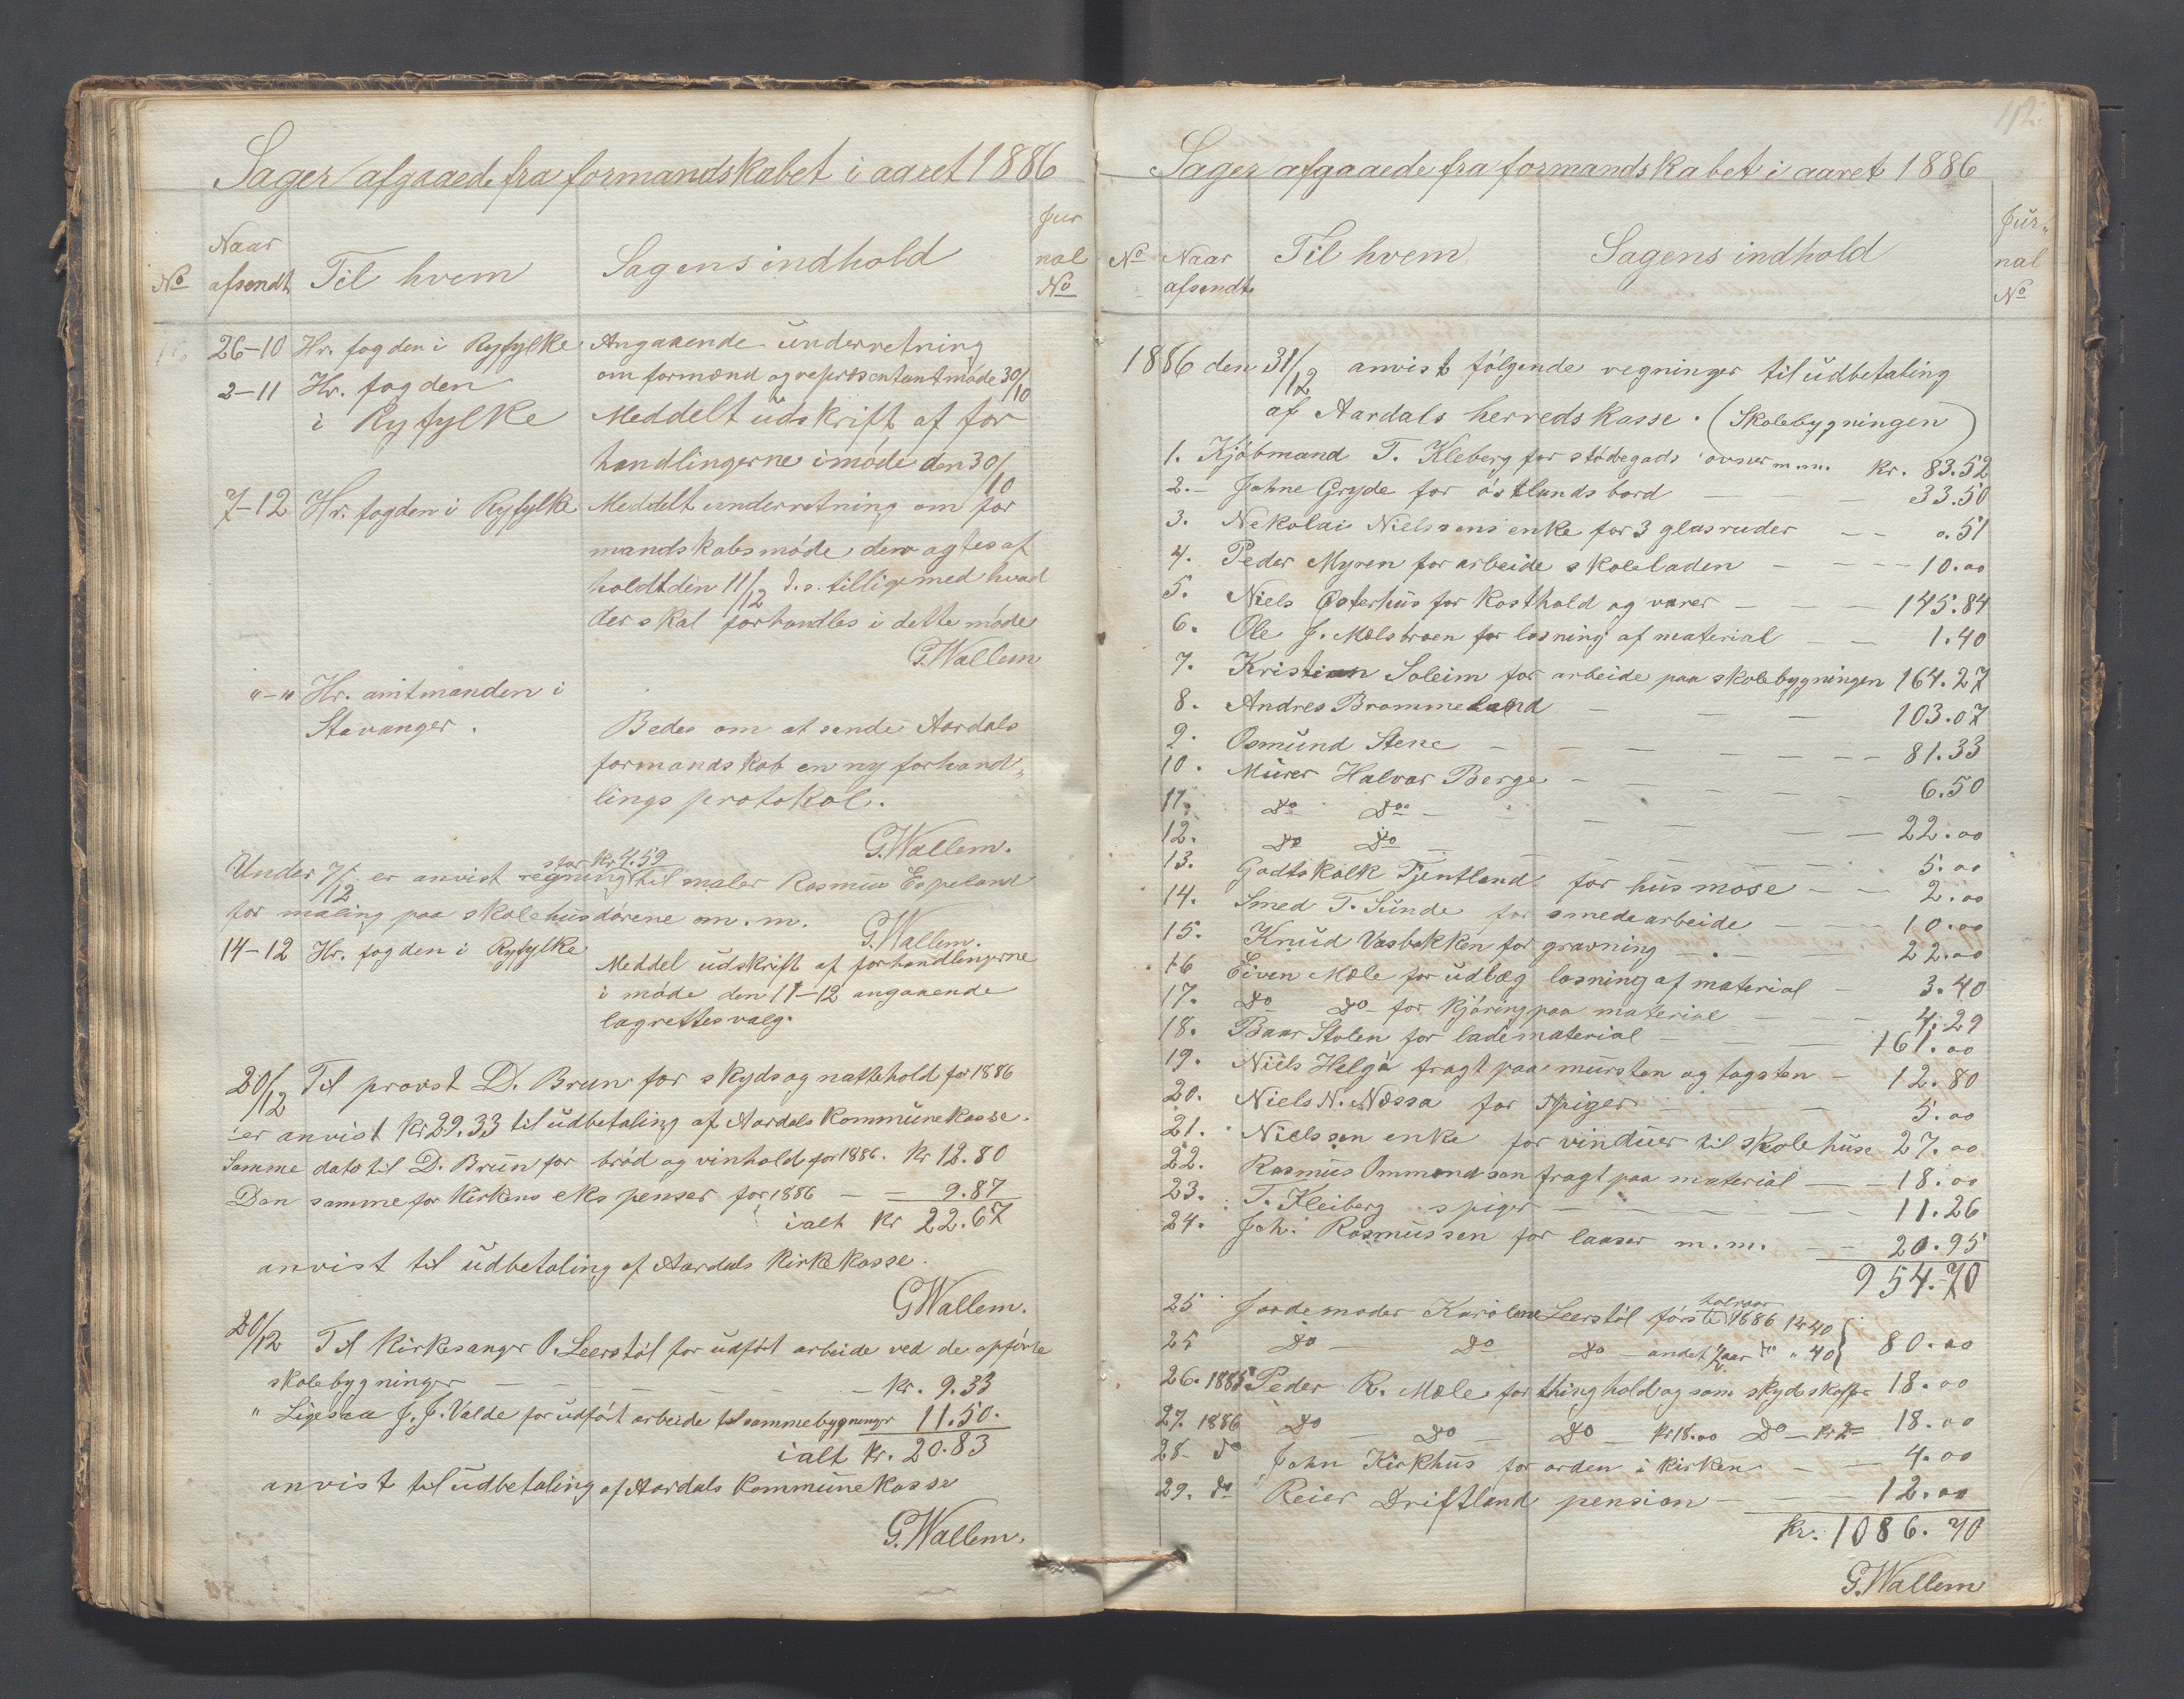 Sager afgaaede fra formandskabet i aaret 1886
No
Naar afsendt
Til hvem
Sagens indhold
Jur nal No
26-10 Hr. fogden i Ryfylke Angaaende underretning
om formænd og repræsentantmøde 30/10
2-11 Hr. fogden
i Ryfylke Meddelt udskrift af for
handlingerne i møde den 30/10
7-12 Hr. fogden i Ryfylke Meddelt underretning om for
mandskabsmøde, der agtes af
holdt den 11/12 d.s. tilligemed hvad
der skal forhandles i dette møde
G. Wallem
"-" Hr. amtmanden i
Stavanger. Bedes om at sende Aardals
formandskab en ny forhand„
lingsprotokol.
G. Wallem.
stor kr 4.59
Under 7/12 er anvist regning til maler Rasmus Espeland
for maling paa skolehusdørene m.m.
G. Wallem.
14-12 Hr. fogden i Ryfylke Meddel udskrift af forhandlingerne
i møde den 11-12 angaaende
lagrettesvalg.
20/12 Til provst D. Brun for skyds og nattehold for 1886
er anvist kr 29.33 til udbetaling af Aardals kommunekasse.
Samme dato til D. Brun for brød og vinhold for 1886. kr 12.80
Den samme for kirkens ekspenser for 1886 — — 9.87
ialt kr 22.67
anvist til udbetaling af Aardals kirkekasse.
G Wallem.
20/12 Til kirkesanger O. Leerstøl for udført arbeide ved de opførte
skolebygninger — — — — — kr. 9.33
" Ligesaa J. J. Valde for udført arbeide til sammebygninger 11.50.
ialt kr. 20.83
anvist til udbetaling af Aardals kommunekasse
G. Wallem.
Sager afgaaede fra formandskabet i aaret 1886
No
Naar afsendt
Til hvem
Sagens indhold
Jur„ nal No
1886 den 31/12 anvist følgende regninger til udbetaling
af Aardals herredskasse. (Skolebygningen)
1. Kjøbmand T. Kleberg for støbegods ovner m.m. kr. 83.52
2. – Johne Gryde for østlandsbord — — — 33.50
3. Nekolai Nielssens enke for 3 glasruder — — 0.51
4. Peder Myren for arbeide skoleladen — — — 10.00
5. Niels Østerhus for kosthold og varer — — — 145.84
6. Ole J. Mælsbroen for losning af material — — 1.40
7. Kristian Soleim for arbeide paa skolebygningen 164.27
8. Andres Brommeland — — — 103.07
9. Osmund Stene — — — — — — 81.33
10. Murer Halvar Berge — — — — — 6.50
11. Do Do — — — — — 22.00
12. Do Do — — — — — 5.00
13. Godtskalk Tjentland for husmose — — 2.00
14. Smed T. Sunde for smedearbeide — — — 10.00
15. Knud Vasbakken for gravning — — — 22.00
16 Eiven Mæle for udlæg losning af material — 3.40
17. Do Do for kjøring paa material — — — 4.29
18. Baar Stolen for lade material — — — 161.00
19. Niels Helgø fragt paa mursten og tagsten — 12.80
20. Niels N. Nessa for spiger — — 5.00
21. Nielssen enke for vinduer til skolehuse 27.00
22. Rasmus Ommondsen fragt paa material — — 18.00
23. T. Kleiberg spiger — — — — — 11.26
24. Joh. Rasmussen for laaser m.m. — — 20.95
954.70
halvaar
25 Jordemoder Karolene Leerstøl første 1886 kr 40
25 Do — Do Do — andet ½ aar do " 40 } 80.00
26. 1885 Peder R. Mæle for thinghold og som skydsskaffer 18.00
27. 1886 Do — Do — Do — kr 18.00 Do — kr 2= 18.00
28– do John Kirkhus for orden i kirken — — 4.00
29. do Reier Driftland pension — — — 12.00
kr. 1086.70
G. Wallem